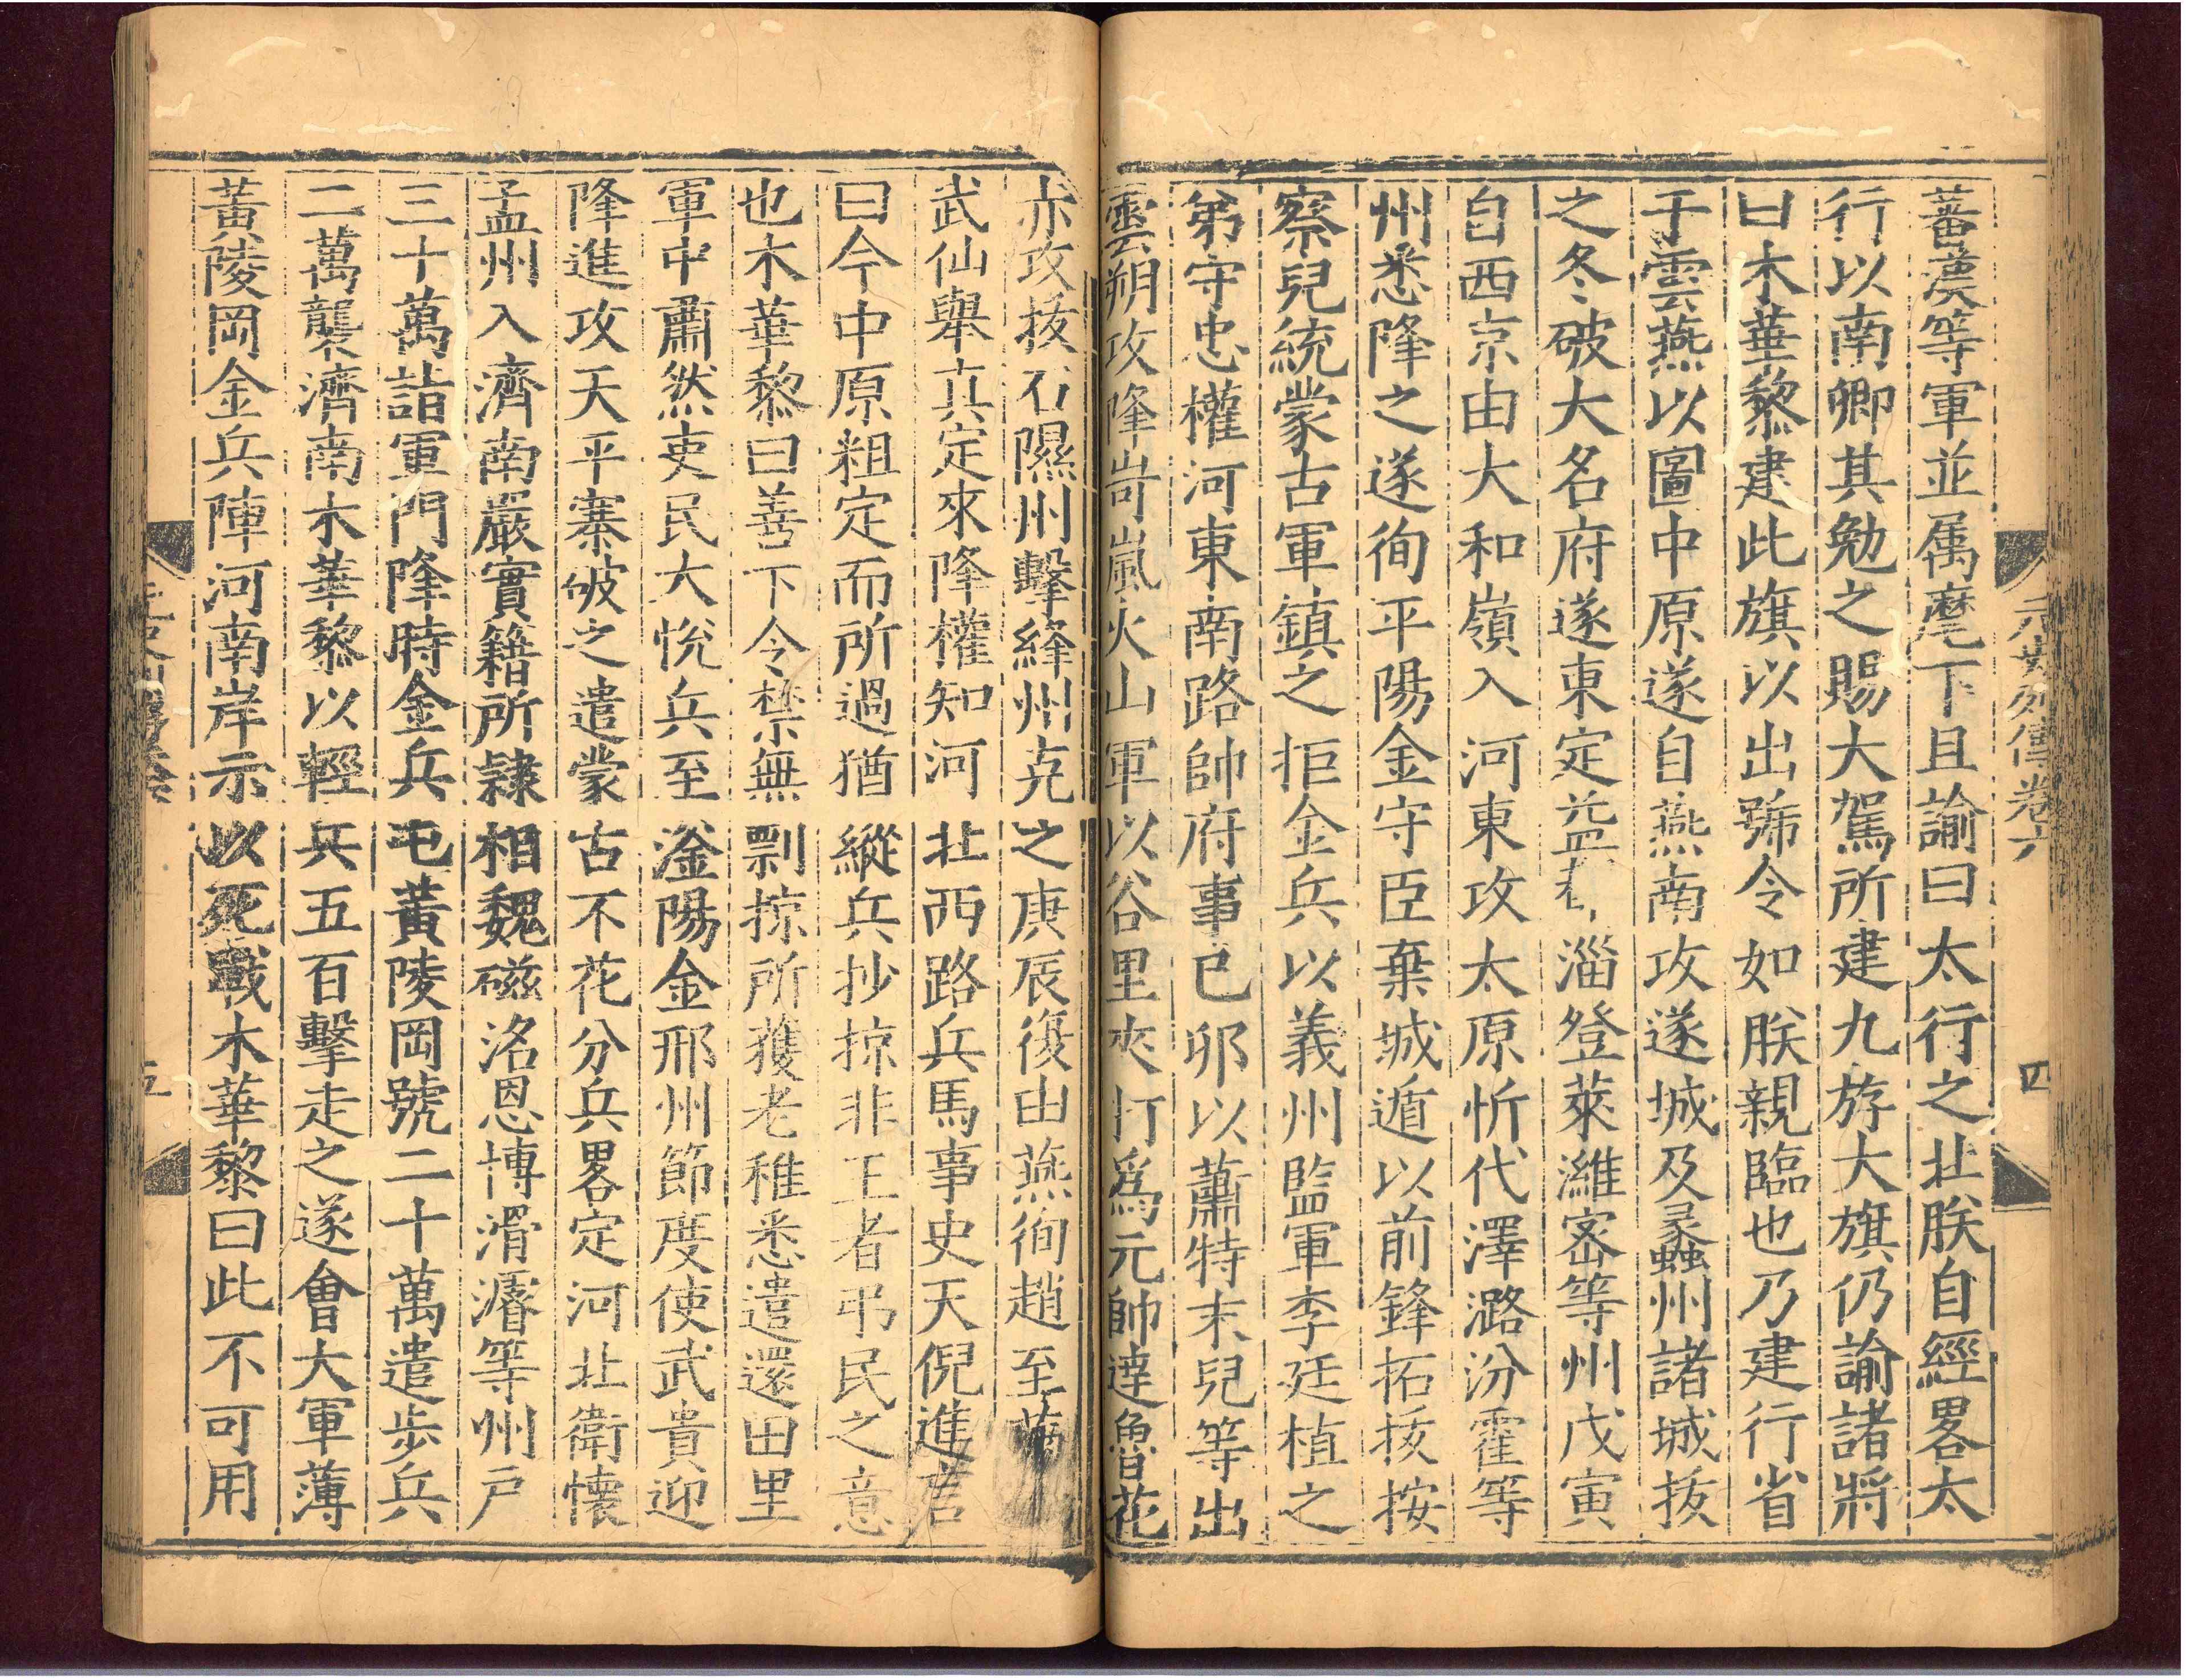 蕃漢等軍並属麾下且諭曰太行之北朕自經畧太
行以南卿其勉之賜大駕所建九斿大旗仍諭諸將
曰木華黎建此旗以出號令如朕親臨也乃建行省
于雲燕以圖中原遂自燕南攻遂城及蠡州諸城拔
之冬破大名府遂東定益淄登萊濰宻等州戊寅
自西京由大和嶺入河東攻太原忻代澤潞汾霍等
州悉降之遂徇平陽金守臣棄城遁以前鋒拓拔按
察兒統蒙古軍鎮之拒金兵以義州監軍李廷植之
弟守忠權河東南路帥府事已夘以蕭特末兒等出
雲朔攻降岢嵐火山軍以谷里夾打爲元帥達魯花
赤攻拔石隰州擊絳州克之庚辰復由燕徇趙至滿
武仙舉真定來降權知河北西路兵馬事史天倪進言
曰今中原粗定而所過猶縱兵抄掠非王者弔民之意
也木華黎曰善下令禁無剽掠所獲老稚悉遣還田里
軍中肅然吏民大悅兵至滏陽金邢州節度使武貴迎
降進攻天平寨破之遣蒙古不花分兵畧定河北衛懷
孟州入濟南嚴實籍所隷相魏磁洺恩博滑濬等州戸
三十萬詣軍門降時金兵屯黃陵岡號二十萬遣步兵
二萬襲濟南木華黎以輕兵五百擊走之遂會大軍薄
黃陵岡金兵陣河南岸示以死戰木華黎曰此不可用
元史列傳卷六
四
五